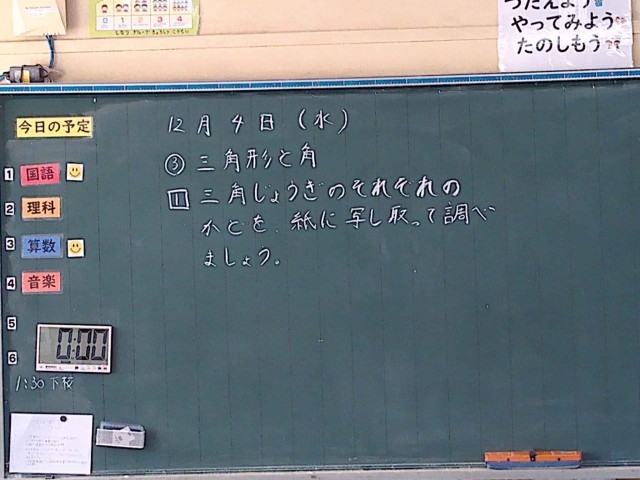 0 1 2 3 4
つたえよう
やってみよう
たのしもう
今日の予定
1 国語
2 理科
3 算数
4 音楽
5
6
0:00
1:30下校
12月4日(水)
③ 三角形と角
1 三角じょうぎのそれぞれの
かどを、紙に写し取って調べ
ましょう。